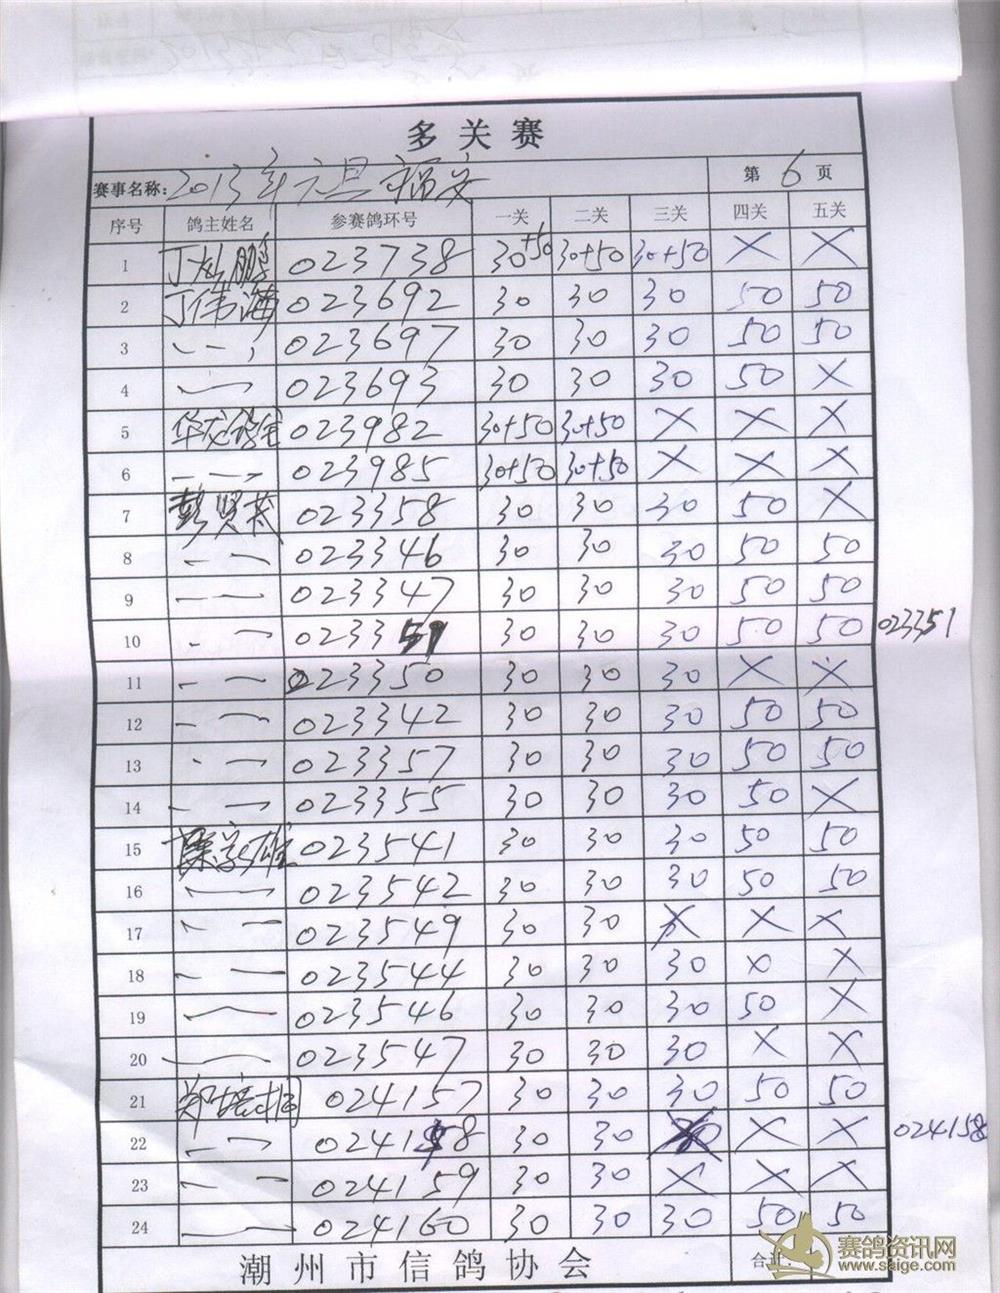 多关赛
赛事名称: 2013年元旦福安 第 6 页
序号 鸽主姓名 参赛鸽环号 一关 二关 三关 四关 五关
1 023738 30+50 30+50 30+50 × ×
2 丁伟海 023692 30 30 30 50 50
3 〃 023697 30 30 30 50 50
4 〃 023693 30 30 30 50 ×
5 023982 30+50 30+50 × × ×
6 〃 023985 30+50 30+50 × × ×
7 彭贤英 023358 30 30 30 50 ×
8 〃 023346 30 30 30 50 50
9 〃 023347 30 30 30 50 50
10 〃 023351 30 30 30 50 50 023351
11 〃 023350 30 30 30 × ×
12 〃 023342 30 30 30 50 50
13 〃 023357 30 30 30 50 50
14 〃 023355 30 30 30 50 ×
15 023541 30 30 30 50 50
16 〃 023542 30 30 30 50 50
17 〃 023549 30 30 × × ×
18 〃 023544 30 30 30 × ×
19 〃 023546 30 30 30 50 ×
20 〃 023547 30 30 30 × ×
21 024157 30 30 30 50 50
22 〃 024158 30 30 × × × 024158
23 〃 024159 30 30 × × ×
24 〃 024160 30 30 30 50 50
潮州市信鸽协会 合计:
赛鸽资讯网
www.saige.com